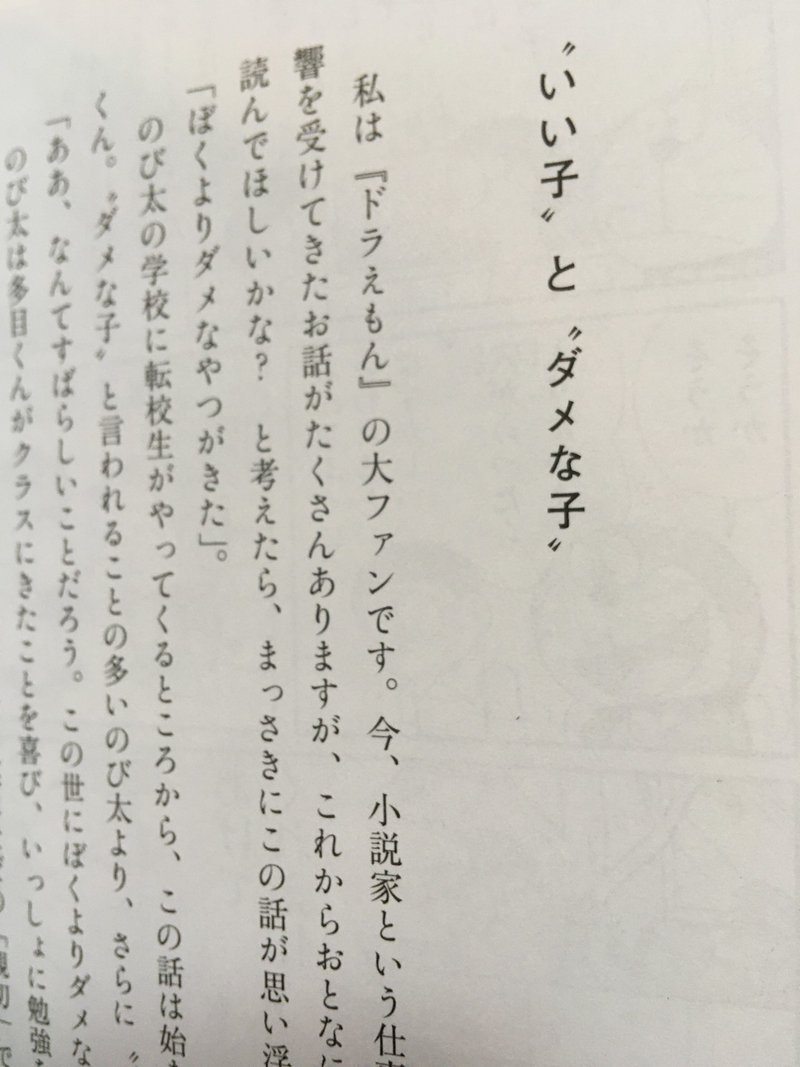 〝いい子〟と〝ダメな子〟
私は『ドラえもん』の大ファンです。今、小説家という仕事
響を受けてきたお話がたくさんありますが、これからおとなに
読んでほしいかな？　と考えたら、まっさきにこの話が思い浮
「ぼくよりダメなやつがきた」。
のび太の学校に転校生がやってくるところから、この話は始ま
くん。〝ダメな子〟と言われることの多いのび太より、さらに〝
「ああ、なんてすばらしいことだろう。この世にぼくよりダメな
のび太は多目くんがクラスにきたことを喜び、いっしょに勉強を